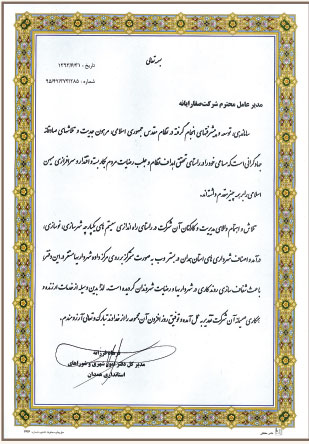 بسمه تعالی
تاریخ: ۱۳۹۲/۶/۳۱
شماره: ۹۵/۴۲/۳۷۳۲۸۵
مدیر عامل محترم شرکت صفارایانه
ساماندهی، توسعه و پیشرفتهای انجام گرفته در نظام مقدس جمهوری اسلامی، مرهون جدیت و تلاشهای صادقانه
جهادگرانی است که مساعی خود را در راستای تحقق اهداف نظام و جلب رضایت مردم بکار بسته و اقتدار و سرافرازی میهن
اسلامی را بر هر چیز مقدم داشته‌اند.
تلاش و اهتمام والای مدیریت و کارکنان آن شرکت در راستای راه اندازی سیستم های یکپارچه شهرسازی، نوسازی،
درآمد و اصناف شهرداری های استان همدان در بستر وب به صورت متمرکز بر روی مرکز داده شهرداریها مستقر در این دفتر،
باعث شفاف سازی روند کاری در شهرداریها و رضایت شهروندان گردیده است. لذا بدین وسیله از خدمات ارزنده و
همکاری صمیمانه آن شرکت تقدیر به عمل آمده و توفیق روز افزون آن مجموعه را از خداوند تبارک و تعالی آرزومندم.
مدیر کل دفتر امور شهری و شوراهای
استانداری همدان